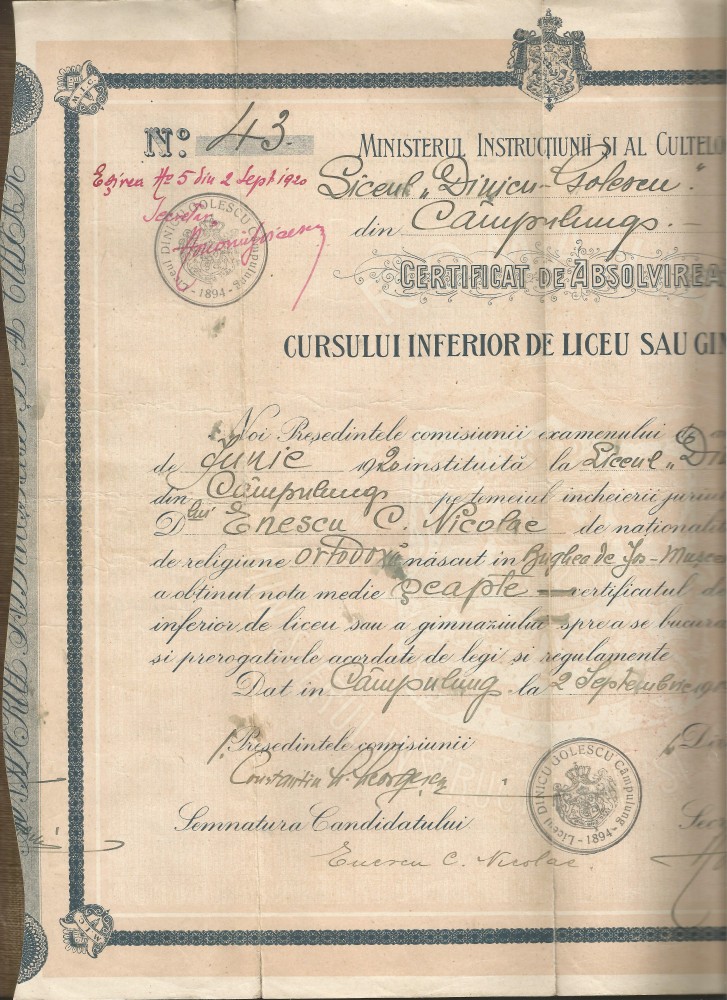 No. 43.
MINISTERUL INSTRUCŢIUNII ŞI AL CULTELO
Eşirea No 5 din 2 Sept 1920
Liceul „Dinicu-Golescu".
Secretar
din Câmpulung. -
LICEUL DINICU GOLESCU Câmpulung - 1894 -
CERTIFICAT DE ABSOLVIREA
CURSULUI INFERIOR DE LICEU SAU GIM
Noi Preşedintele comisiunii examenului de
de Junie 1920 instituită la Liceul „Di
din Câmpulung pe temeiul încheierii
Dlui Enescu C. Nicolae de naţionalit
de religiune ortodoxă născut în Bughea de Jos-Musce
a obţinut nota medie şeapte — certificatul d
inferior de liceu sau a gimnaziului spre a se bucura
şi prerogativele acordate de legi şi regulamente
Dat în Câmpulung la 2 Septembrie 19
Preşedintele comisiunii
Constantin
Liceul DINICU GOLESCU Câmpulung - 1894 -
Semnatura Candidatului
Enescu C. Nicolae.